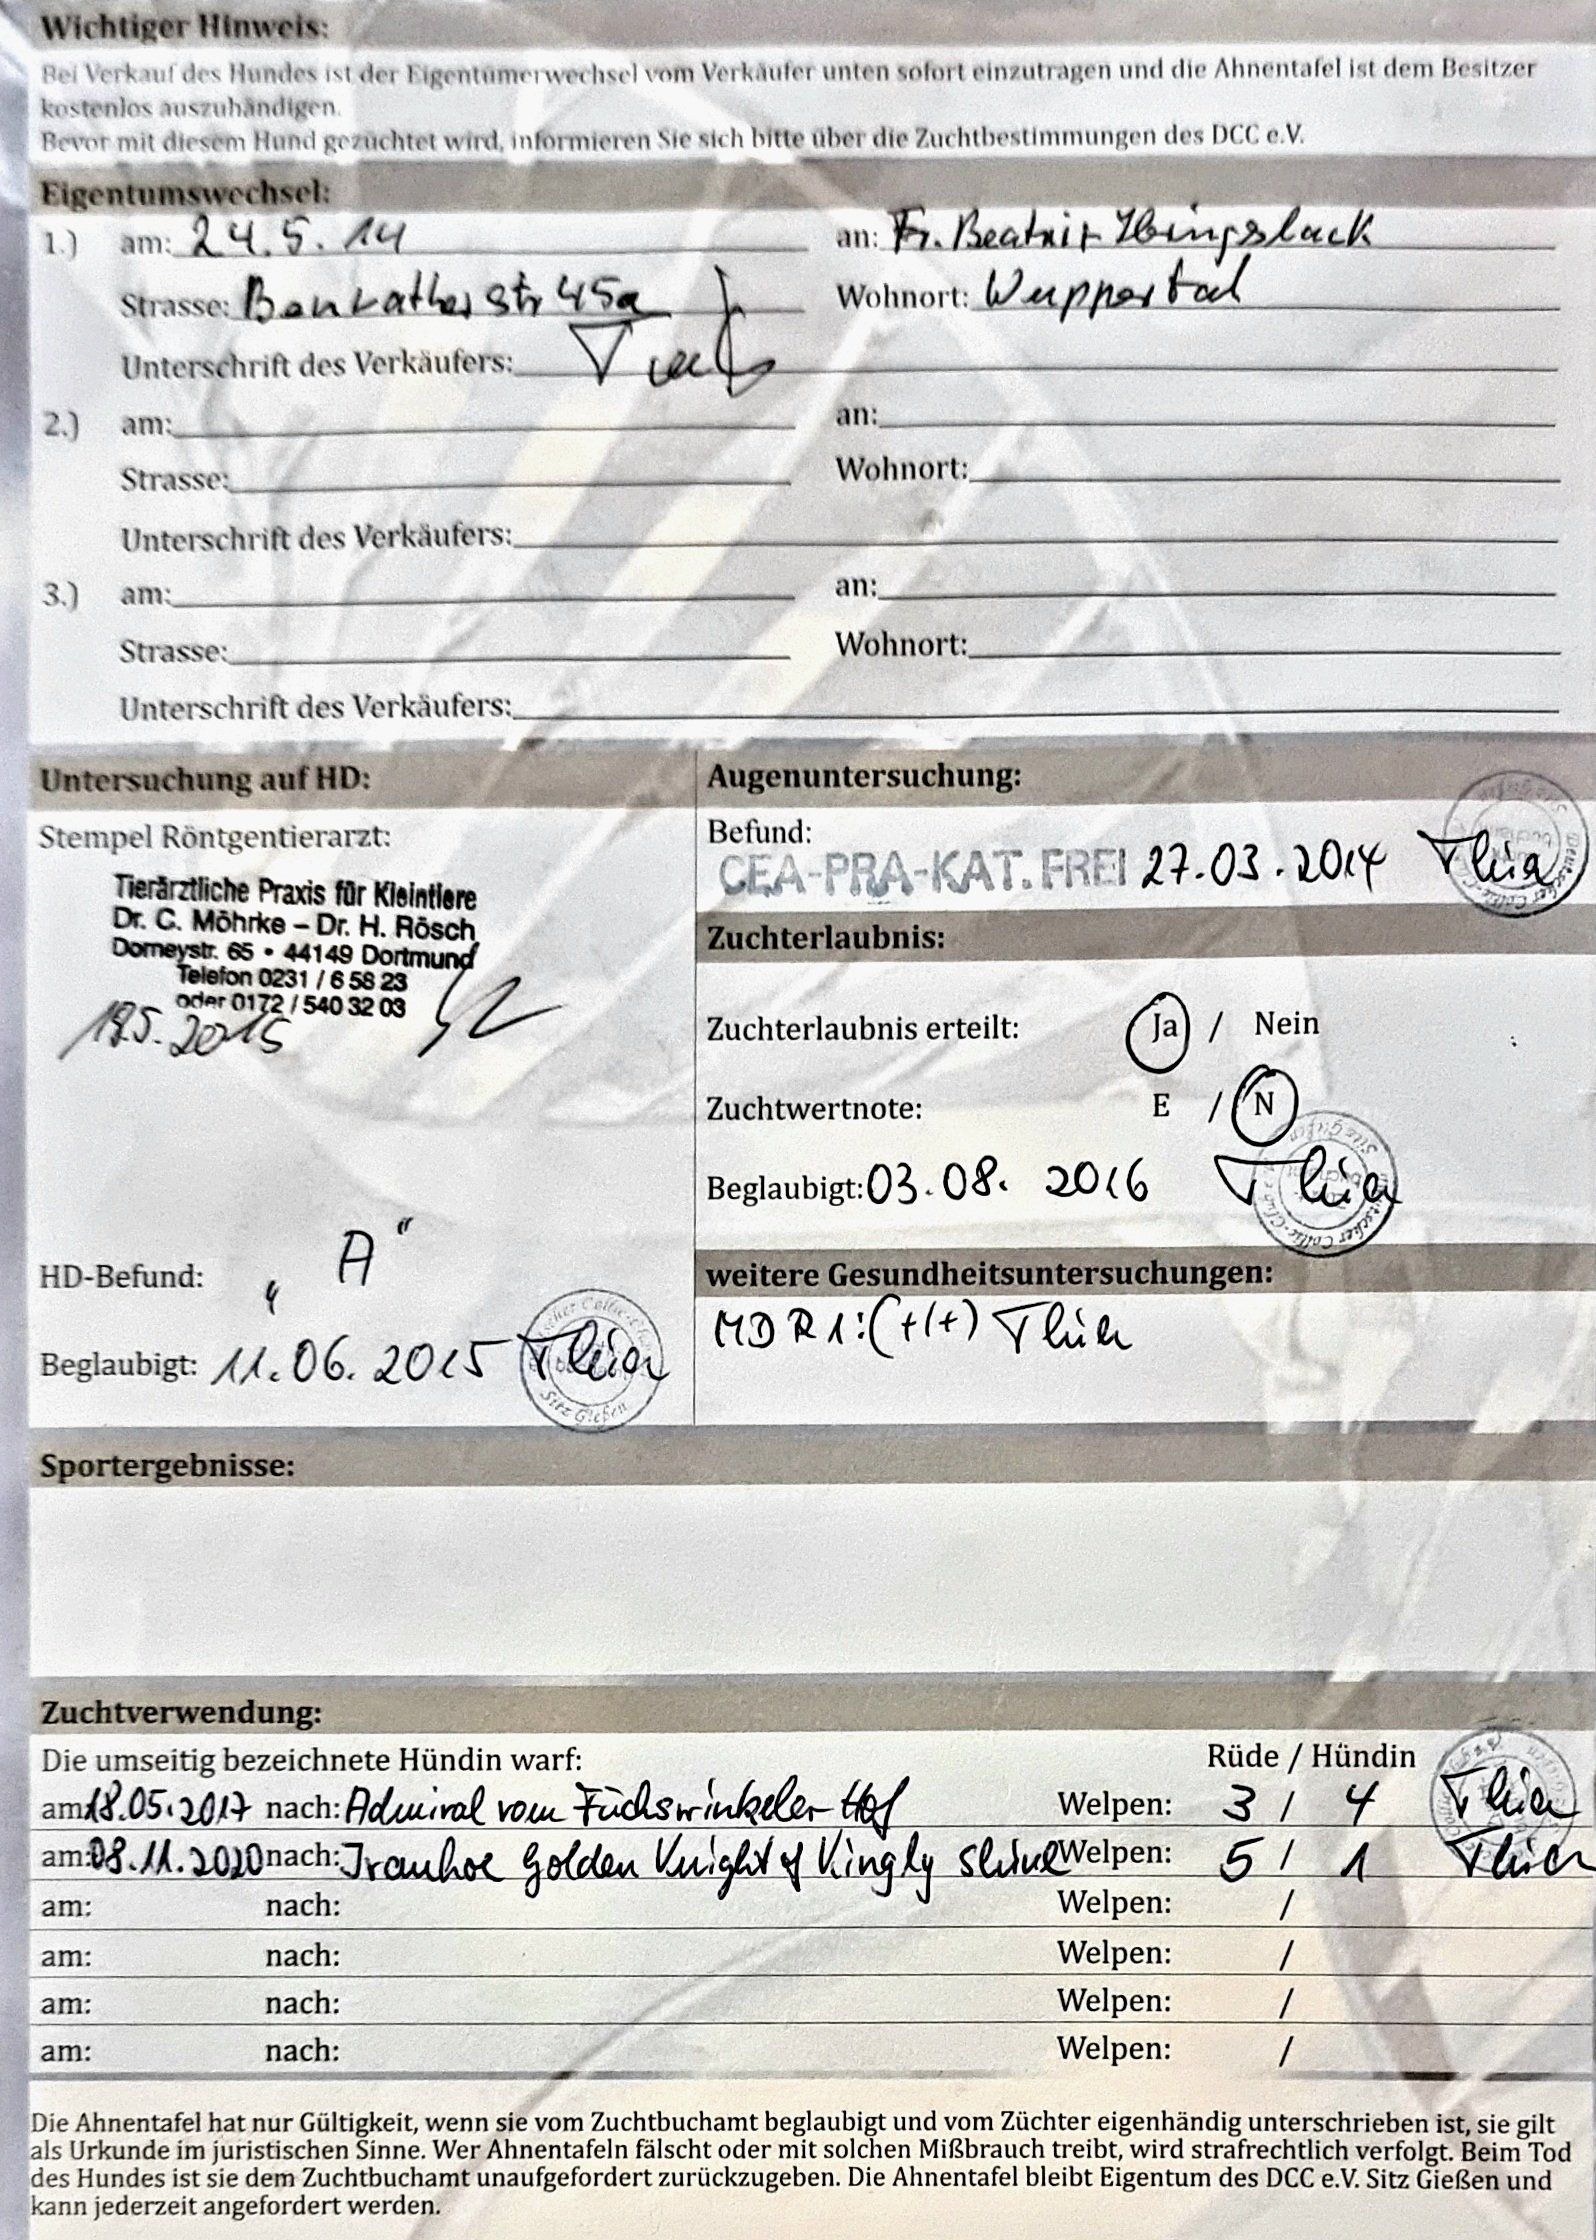 Wichtiger Hinweis:
Bei Verkauf des Hundes ist der Eigentümerwechsel vom Verkäufer unten sofort einzutragen und die Ahnentafel ist dem Besitzer
kostenlos auszuhändigen.
Bevor mit diesem Hund gezüchtet wird, informieren Sie sich bitte über die Zuchtbestimmungen des DCC e.V.
Eigentumswechsel:
1.) am: 24.5.14 an: Fr. Beatrix
Strasse: Benrather Str 45a Wohnort: Wuppertal
Unterschrift des Verkäufers:
2.) am: an:
Strasse: Wohnort:
Unterschrift des Verkäufers:
3.) am: an:
Strasse: Wohnort:
Unterschrift des Verkäufers:
Untersuchung auf HD:
Stempel Röntgentierarzt:
Tierärztliche Praxis für Kleintiere
Dr. C. Möhrke – Dr. H. Rösch
Domeystr. 65 • 44149 Dortmund
Telefon 0231 / 6 58 23
oder 0172 / 540 32 03
19.5.2015
HD-Befund: „A“
Beglaubigt: 11.06.2015
Sitz Gießen
Augenuntersuchung:
Befund:
CEA-PRA-KAT. FREI 27.03.2014
Zuchterlaubnis:
Zuchterlaubnis erteilt: Ja / Nein
Zuchtwertnote: E / N
Beglaubigt: 03.08. 2016
weitere Gesundheitsuntersuchungen:
MDR1: (+/+)
Sportergebnisse:
Zuchtverwendung:
Die umseitig bezeichnete Hündin warf: Rüde / Hündin
am: 18.05.2017 nach: Admiral vom Fuchswinkeler Hof Welpen: 3 / 4
am: 08.11.2020 nach: Ivanhoe Golden Knight of Kingly Shine Welpen: 5 / 1
am: nach: Welpen: /
am: nach: Welpen: /
am: nach: Welpen: /
am: nach: Welpen: /
Die Ahnentafel hat nur Gültigkeit, wenn sie vom Zuchtbuchamt beglaubigt und vom Züchter eigenhändig unterschrieben ist, sie gilt
als Urkunde im juristischen Sinne. Wer Ahnentafeln fälscht oder mit solchen Mißbrauch treibt, wird strafrechtlich verfolgt. Beim Tod
des Hundes ist sie dem Zuchtbuchamt unaufgefordert zurückzugeben. Die Ahnentafel bleibt Eigentum des DCC e.V. Sitz Gießen und
kann jederzeit angefordert werden.